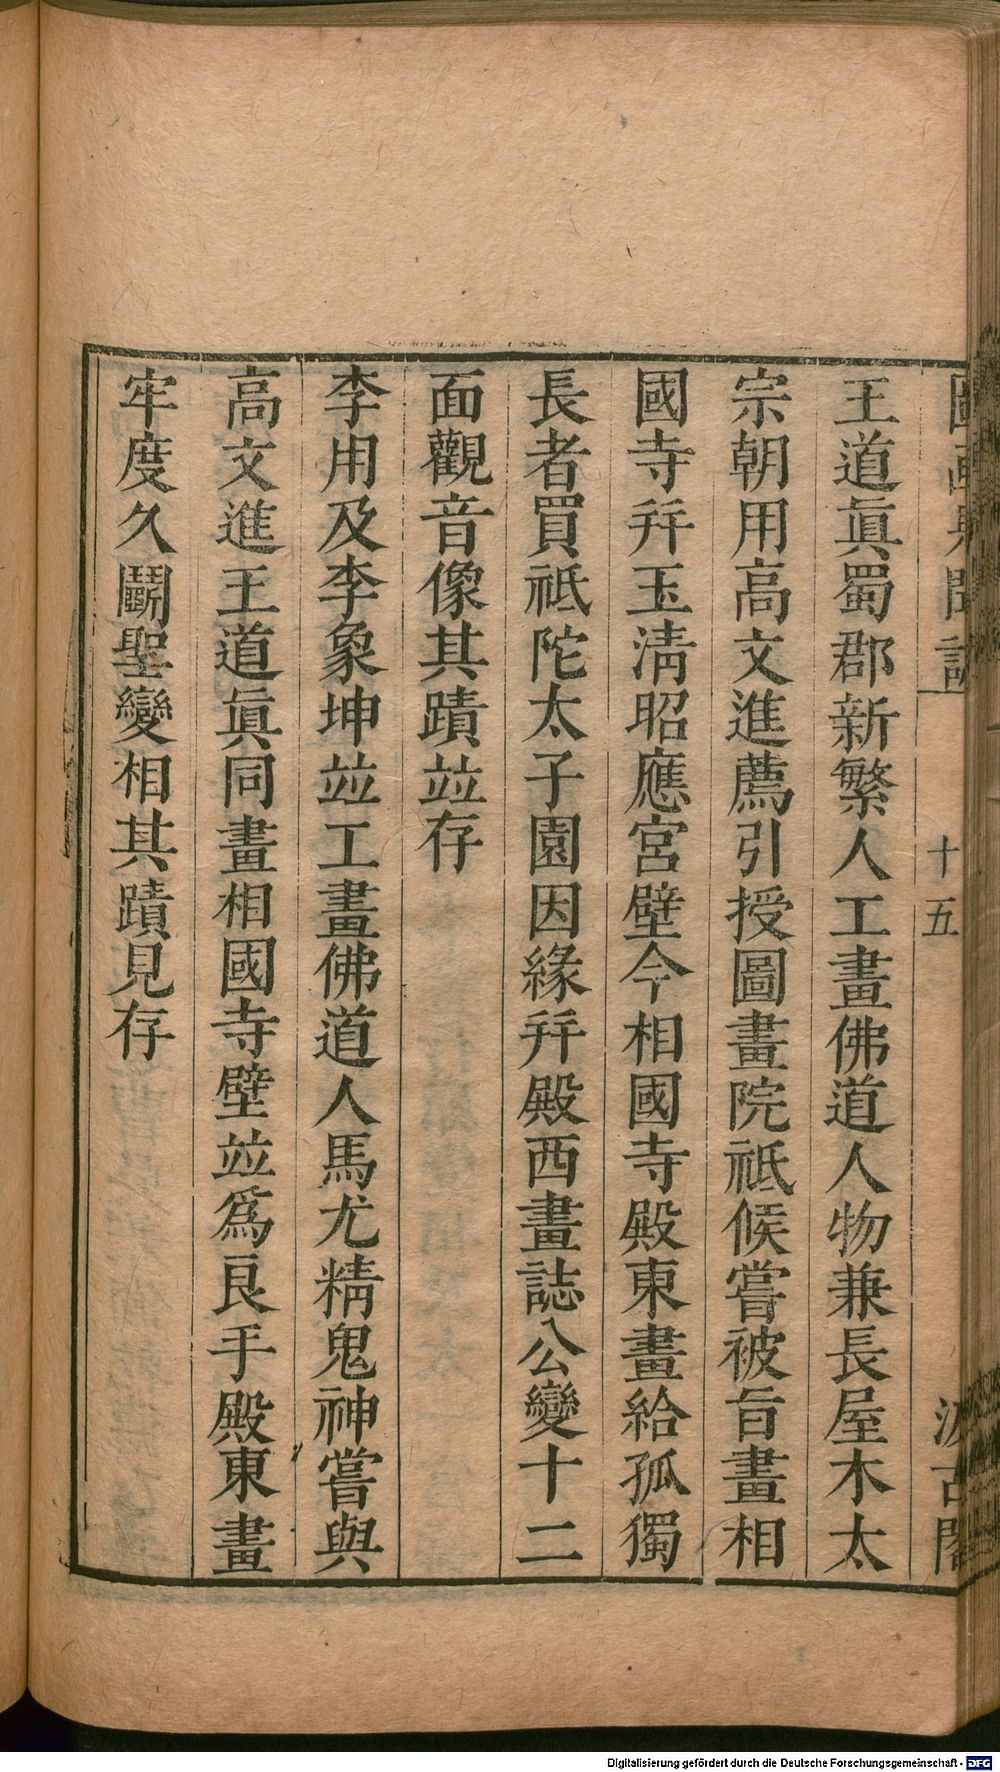 圖畫見聞誌 十五 汲古閣
王道眞蜀郡新繁人工畫佛道人物兼長屋木太
宗朝用高文進薦引授圖畫院祗候嘗被旨畫相
國寺幷玉淸昭應宮壁今相國寺殿東畫給孤獨
長者買祗陀太子園因緣幷殿西畫誌公變十二
面觀音像其蹟竝存
李用及李象坤竝工畫佛道人馬尤精鬼神嘗與
高文進王道眞同畫相國寺壁竝爲良手殿東畫
牢度久鬭聖變相其蹟見存
Digitalisierung gefördert durch die Deutsche Forschungsgemeinschaft - DFG